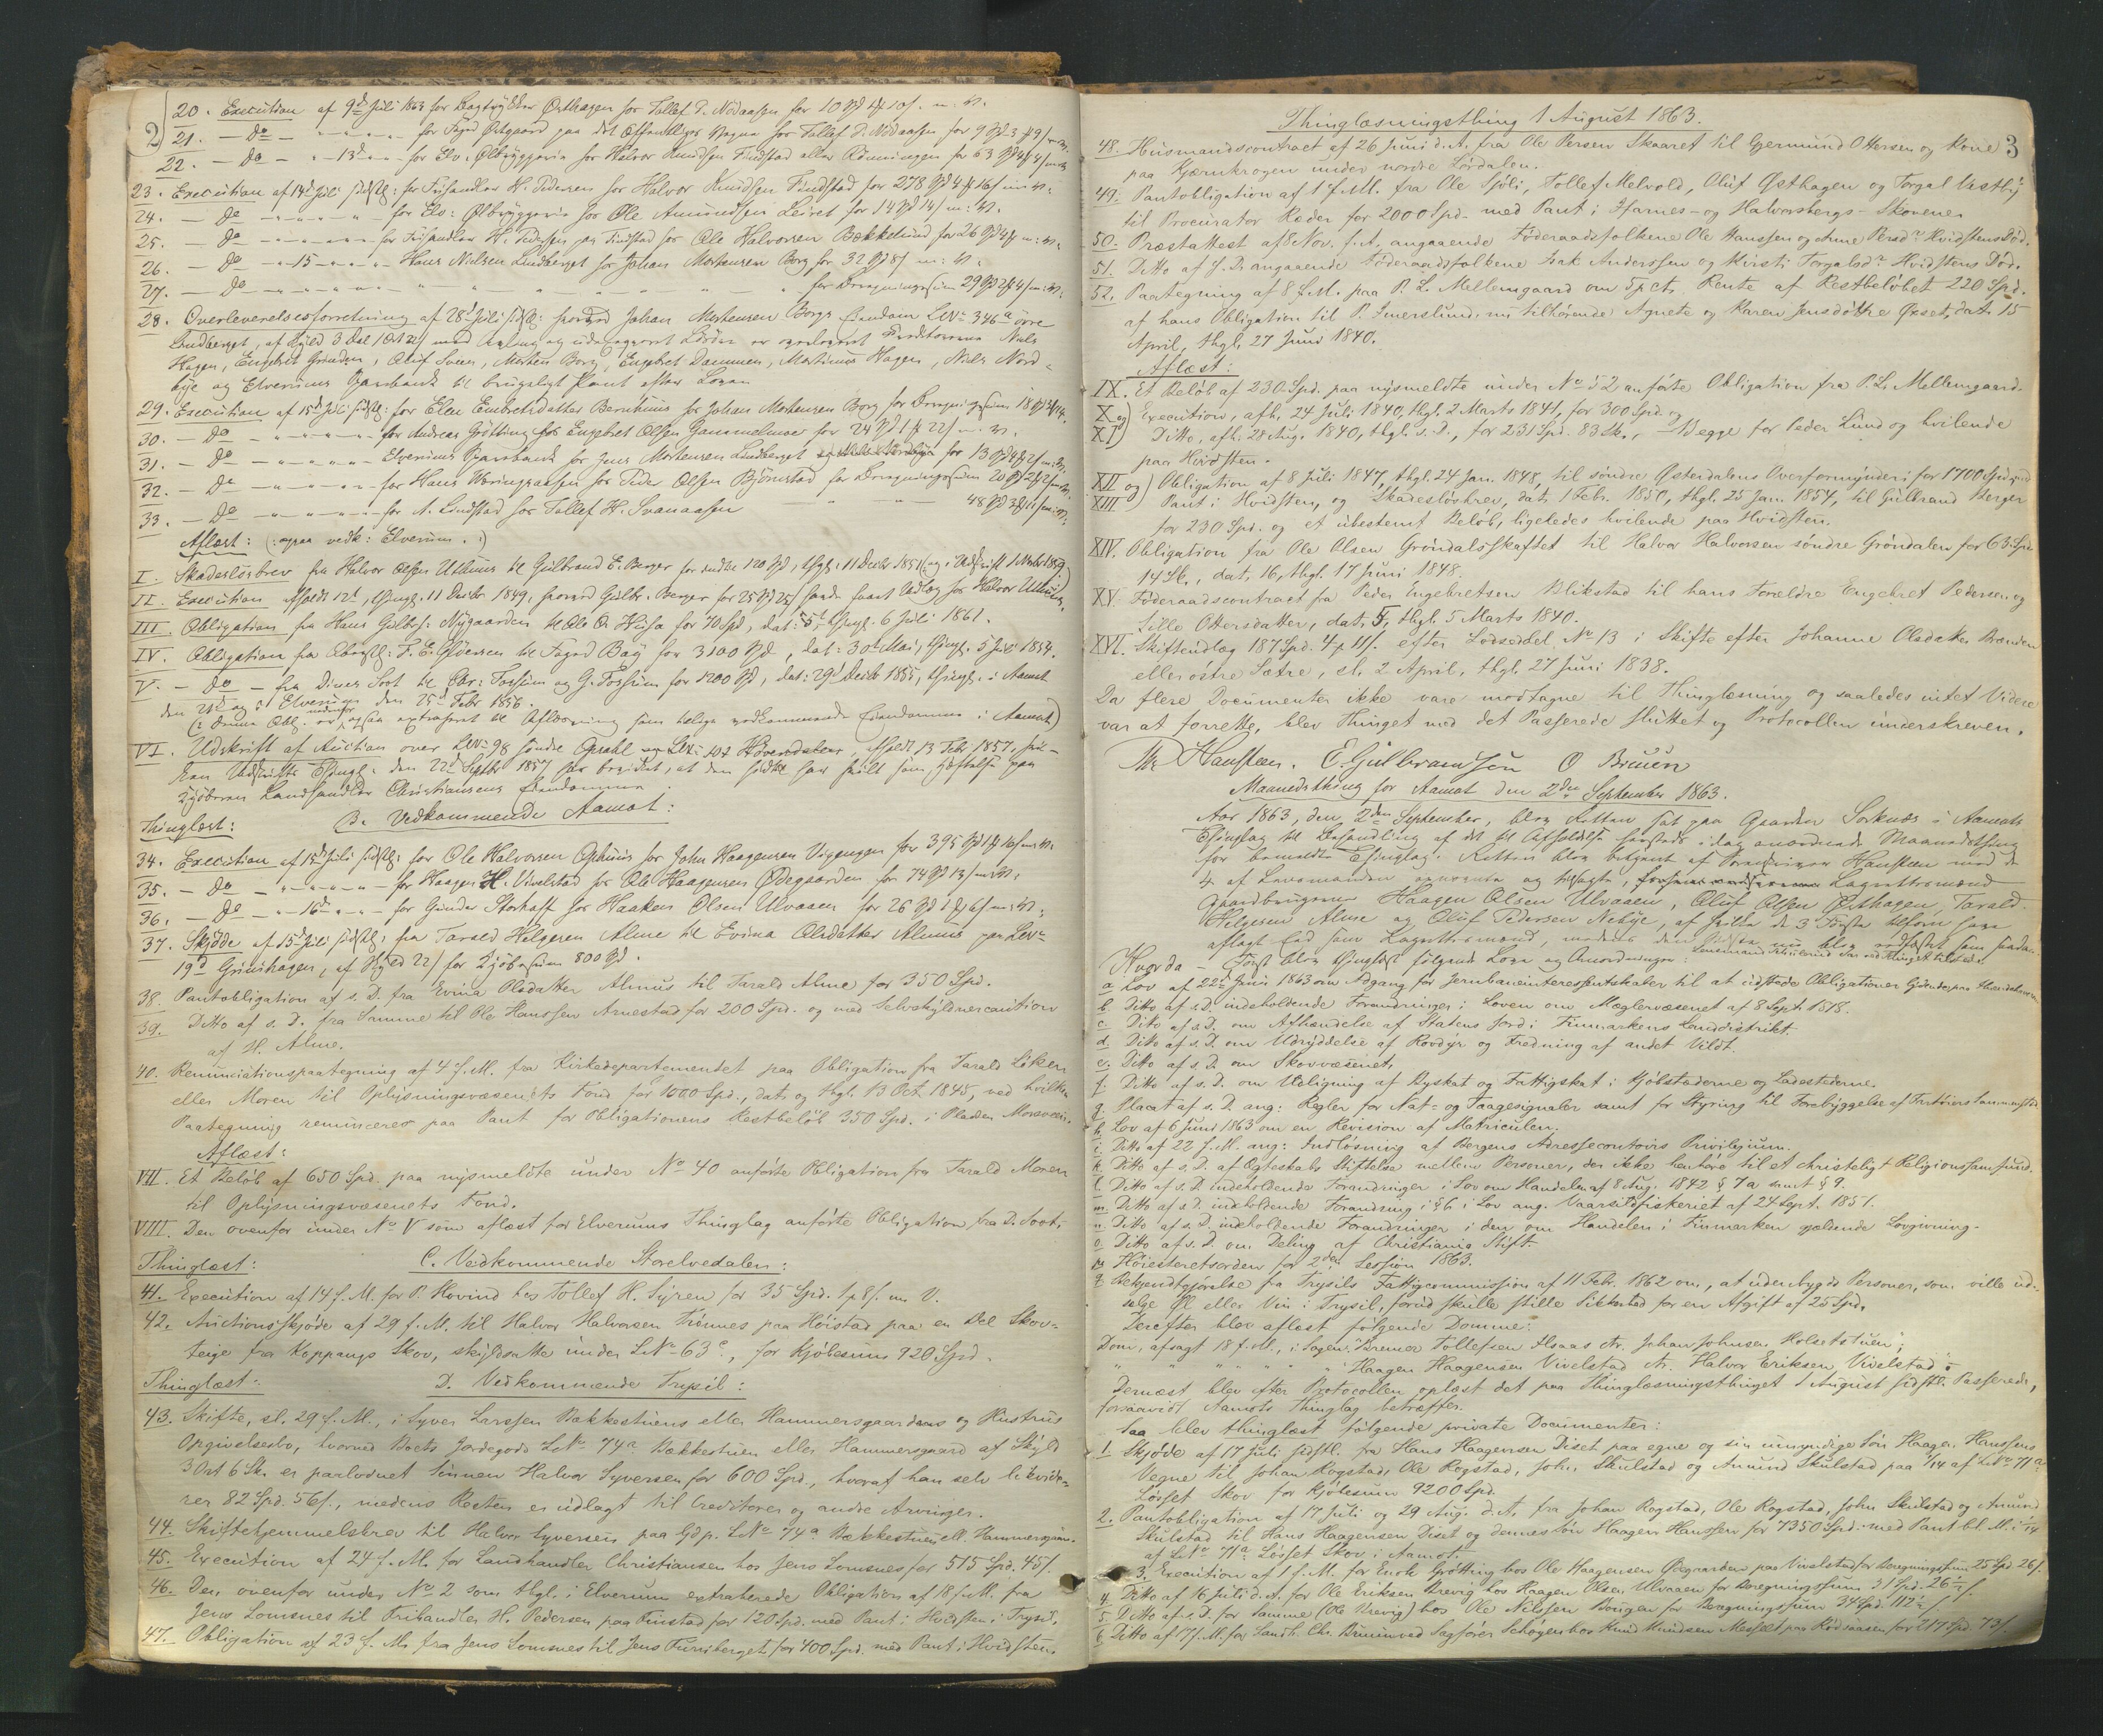 2
20. Execution af 9de Juli 1863 for Bagtrykker Østhagen hos Tollef P. Nödaasen for 10 Spd
21. — Do — for Foged Østgaard paa det Offentliges Vegne hos Tollef P. Nödaasen for 9 Spd 3
22. — Do — 13de — for Elv. Ølbryggeri hos Halvor Knudsen Findstad eller Rönningen for 63 Spd
23. Execution af 14de Juli sidstl: for Frihandler H. Pedersen hos Halvor Knudsen Findstad for 278 Spd 4 # 16 s m: V:
24. — Do — for Elv: Ølbryggeri hos Ole Amundsen Leiret for 14 Spd 14 s m: V:
25. — Do — for Frihandler H. Pedersen paa Findstad hos Ole Halvorsen Bækkelund for 26 Spd
26. — Do — 15 — Hans Nielsen Lindberget hos Johan Mortensen Borg for 32 Spd 8 s m: V:
27. — Do — for Beregningssum 29 Spd
28. Overleverelsesforretning af 28de Juli sidstl: hvorved Johan Mortensen Borgs Eiendom LNr 346a övre
Lindberget, af Skyld 3 Dal 1 Ort med Avling og udensognet Lösöre er overleveret Kreditorerne Niels
Hagen, Engebret Grinden, Oluf Soen, Morten Borg, Engebret Dammen, Martinus Hagen, Niels Nord-
bye og Elverums Sparebank til brugeligt Pant efter Loven
29. Execution af 15de Juli sidstl: for Elen Embretsdatter Bernhuus hos Johan Mortensen Borg for Beregningssum 18 Spd
30. — Do — for Andreas Grötting hos Engebret Olsen Gammelmoe for 24 Spd 1 # 22 s m: V.
31. — Do — Elverums Sparebank hos Jens Mortensen Lindberget for 13 Spd
32. — Do — for Hans Woringsaasen hos Peder Olsen Björnstad for Beregningssum 20 Spd
33. — Do — for A. Lindstad hos Tollef H. Svenaasen 48 Spd
Aflæst: (: ogsaa vedk: Elverum. :)
I. Skadeslösbrev fra Halvor Olsen Uthuus til Gulbrand E. Berger for indtil 120 Spd, thgl: 11 Decbr 1851
II. Execution afholdt 12te, thingl. 11 Decbr 1849, hvorved Gulbr. Berger for 25 Spd havde faaet Udlæg hos Halvor Uthuus.
III. Obligation fra Hans Gulbrs. Nygaarden til Ole O. Husa for 70 Spd, dat: 5te thingl. 6 Juli 1861.
IV. Obligation fra Obrstl: F. E. Gløersen til Foged Bay for 3100 Spd, dat: 30te Mai, thingl. 5 Juli 1854.
V. — Do — fra Dines Soot til Chr: Fossum og G. Fossum for 1200 Spd, dat: 29de Decbr 1855, thingl. i Aamot
den 21de og i Elverum den 25de Febr 1856.
(: denne Obl. er nedenfor ogsaa extraheret til Aflæsning som tillige vedkommende Eiendomme i Aamot)
VI. Udskrift af Auction over LNr 98 söndre Grahl og LNr 102 Hovendalen, afholdt 13 Febr 1857, hvil-
ken Udskrift thingl: den 22de Septbr 1857 har bevidnet, at den sidste har hvilt som Hæftelse paa
Kjöberen Landhandler Christiansens Eiendomme
Thinglæst: B. Vedkommende Aamot:
34. Execution af 15de Juli sidstl: for Ole Halvorsen Ophuus hos John Haagensen Vigengen for 395 Spd 1 # 16 s m: V:
35. — Do — for Haagen H. Vivelstad hos Ole Haagensen Ødegaarden for 74 Spd 13 s m: V:
36. — Do — 16de — for Gunder Storhoff hos Haaken Olsen Ulvaaen for 26 Spd 1 # 6 s m: V:
37. Skjöde af 15de Juli sidstl: fra Tarald Helgesen Alme til Evina Olsdatter Almus paa LNr
19d Grimshagen, af Skyld 22 s for Kjöbesum 800 Spd.
38. Pantobligation af s. D. fra Evina Olsdatter Almus til Tarald Alme for 350 Spd.
39. Ditto af s. D. fra Samme til Ole Hanssen Arnestad for 200 Spd. og med Selvskyldnercaution
af H. Alme.
40. Renunciationspaategning af 4 f. M. fra Kirkedepartementet paa Obligation fra Tarald Löken
eller Moren til Oplysningsvæsenets Fond for 1000 Spd., dat. og thgl. 13 Oct. 1845, ved hvilken
Paategning renunceres paa Pant for Obligationens Restbelöb 350 Spd. i Pladsen Moreveien.
Aflæst:
VII. Et Belöb af 650 Spd. paa nysmeldte under No 40 anförte Obligation fra Tarald Moren
til Oplysningsvæsenets Fond.
VIII. Den ovenfor under No V som aflæst for Elverums Thinglag anförte Obligation fra D. Soot.
Thinglæst: C. Vedkommende Storelvedalen:
41. Execution af 14 f. M. for P. Hovind hos Tollef H. Syren for 35 Spd. 1 # 8 s. m. V.
42. Auctionsskjöde af 29 f. M. til Halvor Halvorsen Trönnes paa Höistad paa en Del Skov-
teige fra Koppangs Skov, skyldsatte under LNo 63c, for Kjöbesum 920 Spd.
Thinglæst: D. Vedkommende Trysil:
43. Skifte, sl. 29 f. M., i Syver Larssen Bakkestuens eller Hammersgaardens og Hustrus
Opgivelsesbo, hvorved Boets Jordegods LNo 74a Bækkestuen eller Hammersgaard af Skyld
3 Ort 6 Sk. er paalodnet Sönnen Halvor Syversen for 600 Spd., hvoraf han selv likvide-
rer 82 Spd. 56 s., medens Resten er udlagt til Creditorer og andre Arvinger.
44. Skiftehjemmelsbrev til Halvor Syversen paa Gdp. LNo 74a Bækkestuen ell. Hammersgaard.
45. Execution af 24 f. M. for Landhandler Christiansen hos Jens Lomsnes for 515 Spd. 45 s.
46. Den ovenfor under No 2 som thgl. i Elverum extraherede Obligation af 18 f. M. fra
Jens Lomsnes til Frihandler H. Pedersen paa Finstad for 120 Spd. med Pant i Hvidsten i Trysil.
47. Obligation af 23 f. M. fra Jens Lomsnes til Jens Furuberget for 400 Spd. med Pant i Hvidsten.
Thinglæsningsthing 1 August 1863.
3
48. Husmandscontract af 26 Juni d. A. fra Ole Persen Skaaret til Gjermund Ottersen og Kone
paa Kjærnkrogen under nordre Lördalen.
49. Pantobligation af 1 f. M. fra Ole Sjöli, Tollef Melvold, Oluf Østhagen og Torgal Vestby
til Procurator Ræder for 2000 Spd. med Pant i Harnes- og Halvorsbergs-Skovene.
50. Præstattest af 8 Nov. f. A. angaaende Föderaadsfolkene Ole Hanssen og Anne Persdr Hvidstens Död.
51. Ditto af s. D. angaaende Föderaadsfolkene Isak Anderssen og Kirsti Torgalsdr Hvidstens Död.
52. Paategning af 8 f. M. paa P. L. Mellemgaard om 5 pCts Rente af Restbelöbet 220 Spd.
af hans Obligation til P. Smerslund, nu tilhörende Agnete og Karen Jensdöttre Øxset, dat. 15
April, thgl. 27 Juni 1840.
Aflæst:
IX. Et Belöb af 230 Spd. paa nysmeldte under No 52 anförte Obligation fra P. L. Mellemgaard.
X og) Execution, afh. 24 Juli 1840, thgl. 2 Marts 1841, for 300 Spd. og
XI) Ditto, afh. 28 Aug. 1840, thgl. s. D., for 231 Spd. 83 Sk., — Begge for Peder Lund og hvilende
paa Hvidsten.
XII og) Obligation af 8 Juli 1847, thgl. 24 Jan. 1848, til söndre Østerdalens Overformynderi for 1700 Spd. med
XIII) Pant i Hvidsten, og Skadeslösbrev, dat. 1 Febr. 1850, thgl. 25 Jan. 1854, til Gulbrand Berger
for 230 Spd. og et ubestemt Belöb, ligeledes hvilende paa Hvidsten.
XIV. Obligation fra Ole Olsen Gröndalsskaftet til Halvor Halvorsen söndre Gröndalen for 63 Spd.
14 Sk., dat. 16, thgl. 17 Juni 1848.
XV. Föderaadscontract fra Peder Engebretsen Blikstad til hans Forældre Engebret Pedersen og
Sille Ottersdatter, dat. 5, thgl. 5 Marts 1840.
XVI. Skifteudlæg 187 Spd. 4 # 11 s. efter Lodseddel No 13 i Skifte efter Johanne Olsdatter Brænden
eller östre Sætre, sl. 2 April, thgl. 27 Juni 1838.
Da flere Documenter ikke vare modtagne til Thinglæsning og saaledes intet Videre
var at forrette, blev Thinget med det Passerede sluttet og Protocollen underskreven.
Hansteen. E. Gulbransen O Bruun
Maanedsthing for Aamot den 2den September 1863.
Aar 1863, den 2den September, blev Retten sat paa Gaarden Sorknæs i Aamots
Thinglag til Behandling af det til Afholdelse sammesteds idag anordnede Maanedsthing
for bemeldte Thinglag. Retten blev betjent af Sorenskriver Hansteen med de
4 af Lensmanden opnævnte og tilsagte, Lagrettesmænd
Gaardbrugerne Haagen Olsen Ulvaaen, Oluf Olsen Østhagen, Tarald
Helgesen Alme og Oluf Pedersen Nebye, af hvilke de 3 Förste tilforn have
aflagt Ed som Lagrettesmænd, medens den Sidste nu blev edfæstet som saadan.
Lensmand Skulerud var ved Thinget tilstede.
Hvorda — Först blev thinglæst følgende Love og Anordninger:
a Lov af 22de Juni 1863 om Adgang for Jernbaneinteressentskaber til at udstede Obligationer lydende paa Ihændehaveren
b. Ditto af s. D. indeholdende Forandringer i Loven om Mæglervæsenet af 8 Sept. 1818.
c. Ditto af s. D. om Afhændelse af Statens Jord i Finmarkens Landdistrikt.
d. Ditto af s. D. om Udryddelse af Rovdyr og Fredning af andet Vildt.
e. Ditto af s. D. om Skovvæsenet.
f. Ditto af s. D. om Udligning af Byskat og Fattigskat i Kjöbstæderne og Ladestederne.
g. Placat af s. D. ang: Regler for Nat- og Taagesignaler samt for Styring til Forebyggelse af Fartöiers Sammenstöd.
h. Lov af 6 Juni 1863 om en Revision af Matriculen.
i. Ditto af 22 f. M. ang: Indlösning af Bergens Adressecontoirs Privilegium.
k. Ditto af s. D. af Ægteskabs Stiftelse mellem Personer, der ikke henhöre til et christeligt Religionssamfund.
l. Ditto af s. D. indeholdende Forandringer i Lov om Handelen af 8 Aug. 1842 § 7a samt § 9.
m. Ditto af s. D. indeholdende Forandring i § 6 i Lov ang. Vaarsildfiskeriet af 24 Sept. 1851.
n. Ditto af s. D. indeholdende Forandringer i den om Handelen i Finmarken gældende Lovgivning.
o. Ditto af s. D. om Deling af Christiania Stift.
p. Höiesteretsorden for 2den Session 1863.
q. Bekjendtgjörelse fra Trysils Fattigcommission af 11 Febr. 1862 om, at udenbygds Personer, som ville ud-
sælge Øl eller Vin i Trysil, forud skulle stille Sikkerhed for en Afgift af 25 Spd.
Derefter blev aflæst følgende Domme:
Dom, afsagt 18 f. M., i Sagen: "Bremer Tollefsen Ilsaas ctr. Johan Johnsen Holsetstuen";
" " " " " " "Haagen Haagensen Vivelstad ctr. Halvor Eriksen Vivelstad".
Dernæst blev efter Protocollen oplæst det paa Thinglæsningsthinget 1 August sidstl. Passerede,
forsaavidt Aamots Thinglag betræffer.
Saa blev thinglæst følgende private Documenter:
1. Skjöde af 17 Juli sidstl. fra Hans Haagensen Diset paa egne og sin umyndige Sön Haagen Hanssens
Vegne til Johan Rogstad, Ole Rogstad, John Skulstad og Amund Skulstad paa 1/14 af LNo 71a
Løsset Skov for Kjöbesum 9200 Spd.
2. Pantobligation af 17 Juli og 29 Aug. d. A. fra Johan Rogstad, Ole Rogstad, John Skulstad og Amund
Skulstad til Hans Haagensen Diset og dennes Sön Haagen Hanssen for 7350 Spd. med Pant bl. A. i 1/14
af LNo 71a Løsset Skov i Aamot.
3. Execution af 1 f. M. for Enok Grötting hos Ole Haagensen Ødegaarden paa Vivelstad for Beregningssum 25 Spd. 26 s.
4. Ditto af 16 Juli d. A. for Ole Eriksen Brevig hos Haagen Olsen Ulvaaen for Beregningssum 31 Spd. 26 s.
5. Ditto af s. D. for Samme (Ole Brevig) hos Ole Nilssen Bougen for Beregningssum 34 Spd. 112 s.
6. Ditto af 17 f. M. for Landh. Chr. Bruun ved Sagförer Schögen hos Knud Knudsen Messelt paa Rödsaasen for 217 Spd. 73 s.